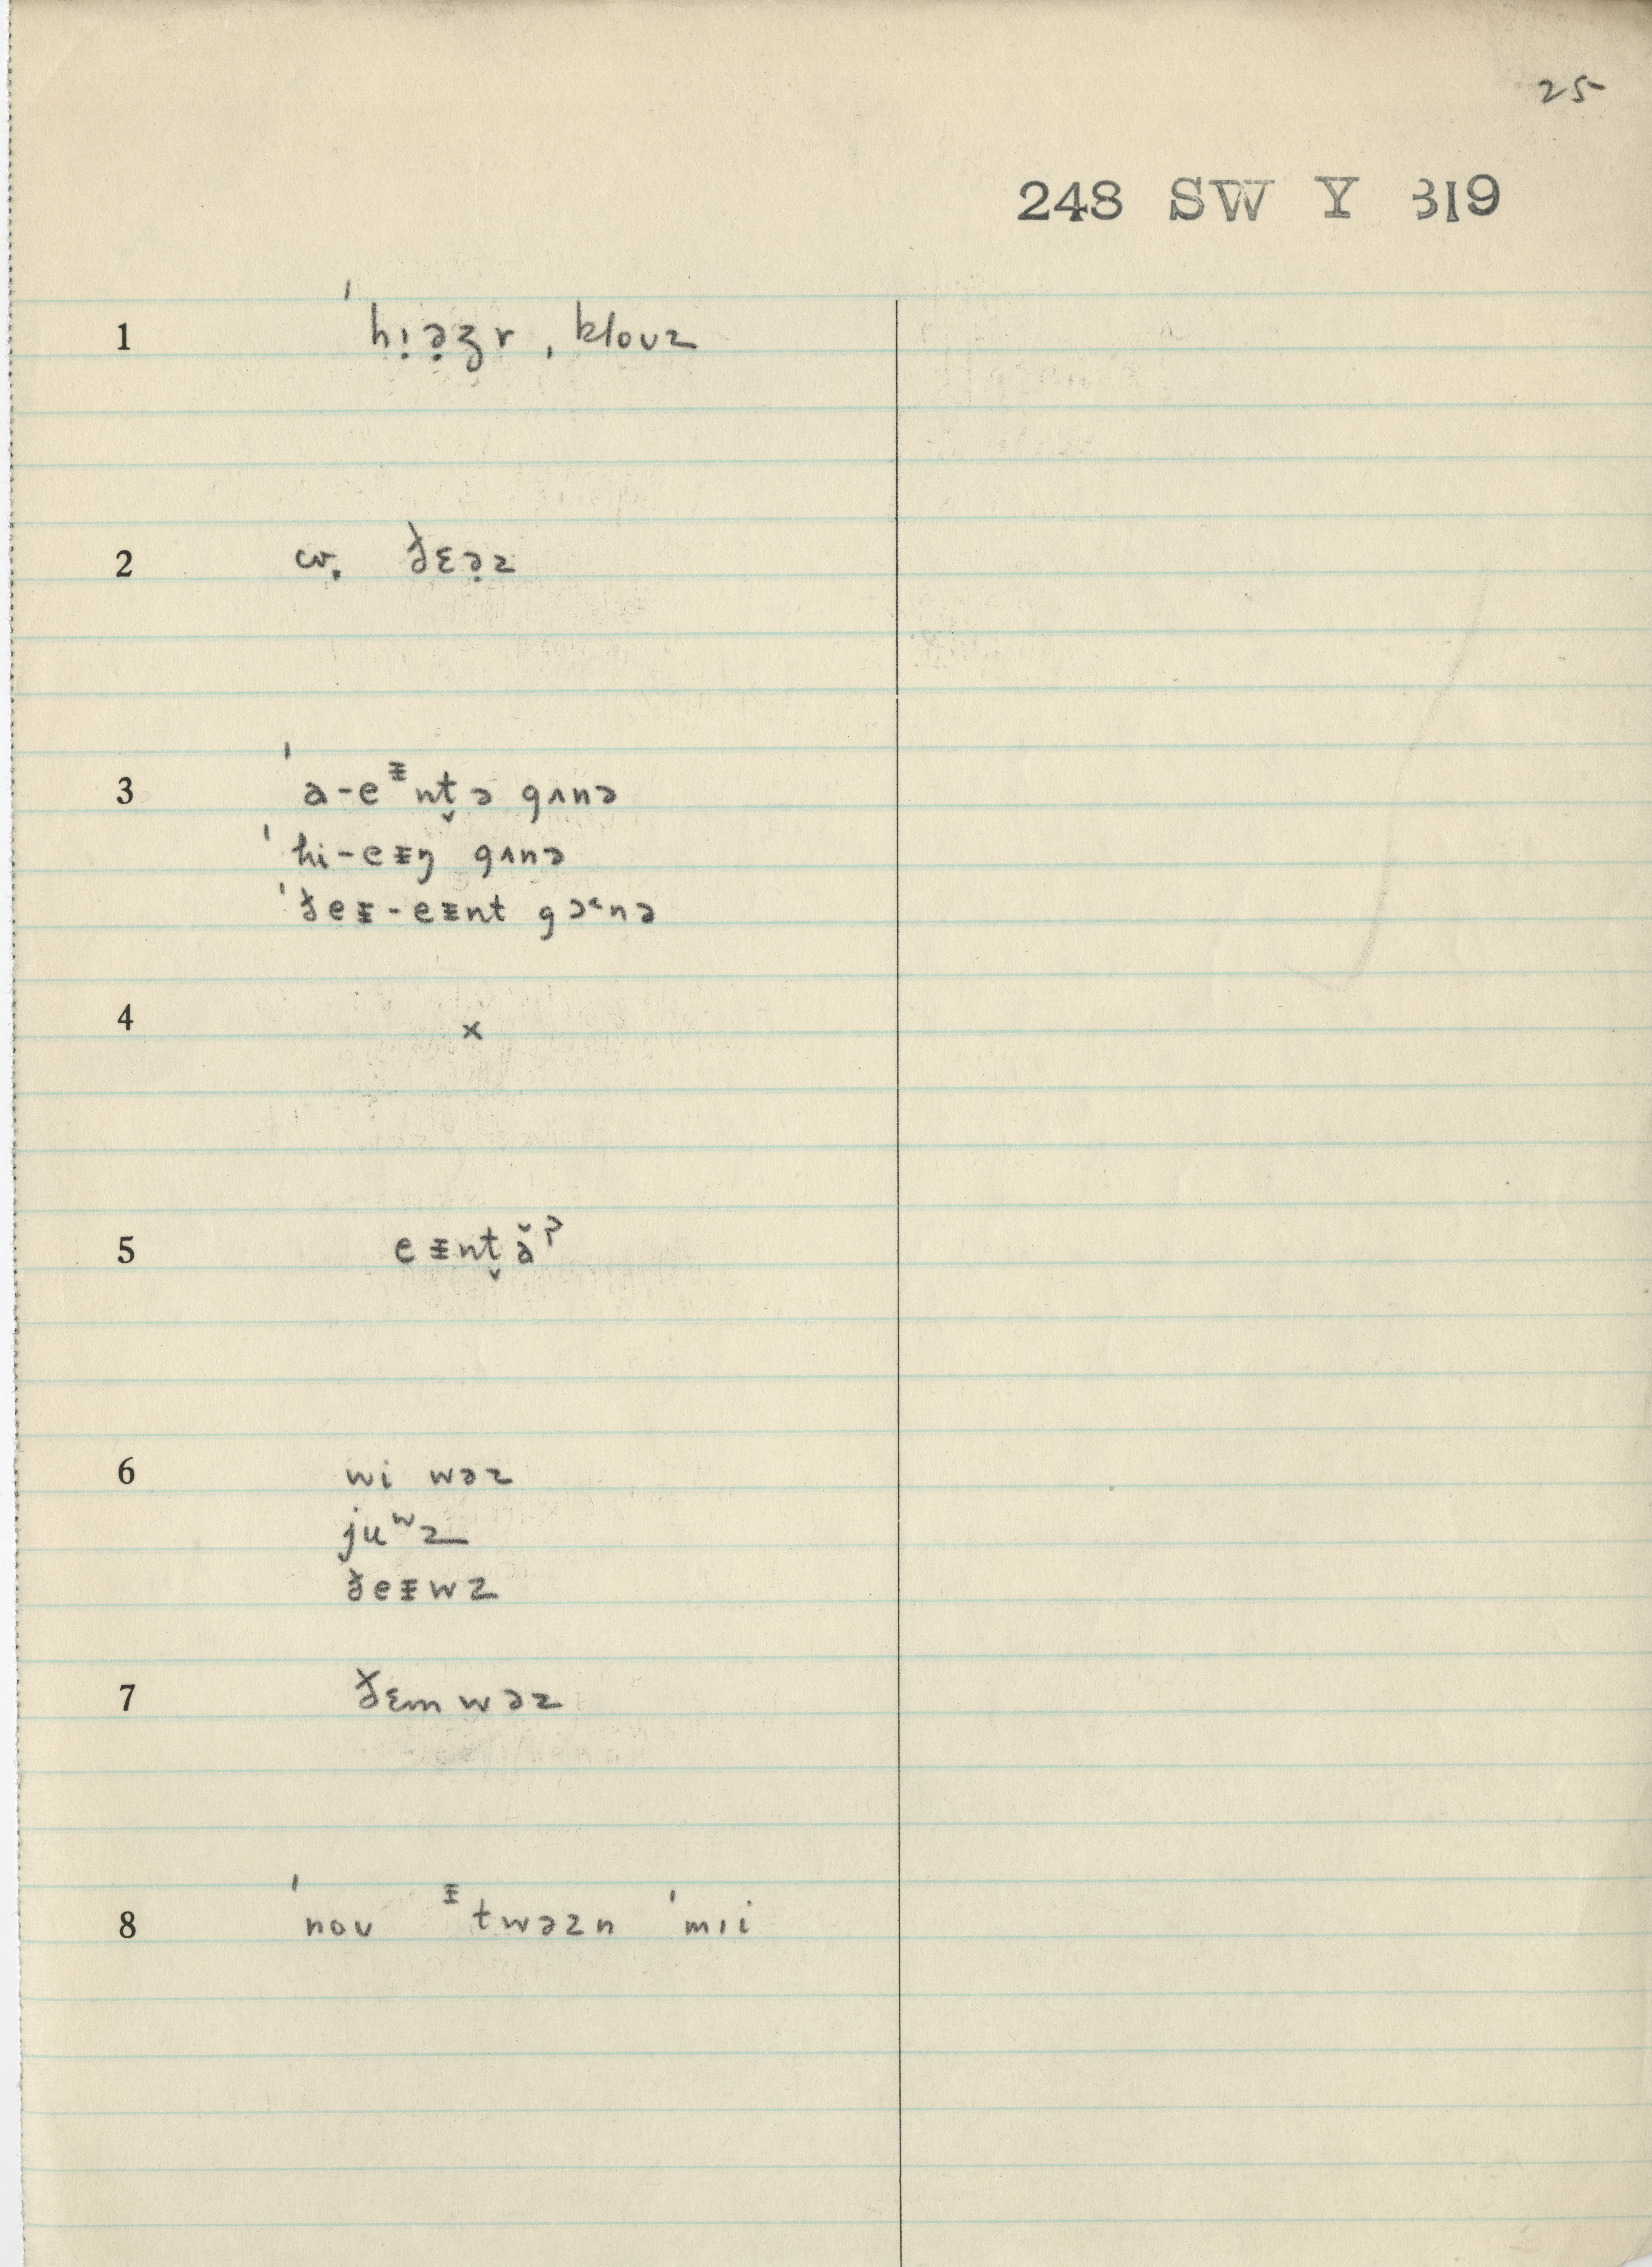 25
248 SW Y 319
1 ˈhı̣ə̣ʒr , kloʊz
2 cv. ðɛə̣z
3 ˈa-eᵻnt̬ə gʌnə
ˈhi-eᵻŋ gʌnə
ˈðeᵻ-eᵻnt gə˂nə
4 ×
5 eᵻnt̬ə̆ˀ
6 wi wəz
juʷz
ðeᵻwz
7 ðɛm wəz
8 ˈnoʊ ᵻtwəzn ˈmıi